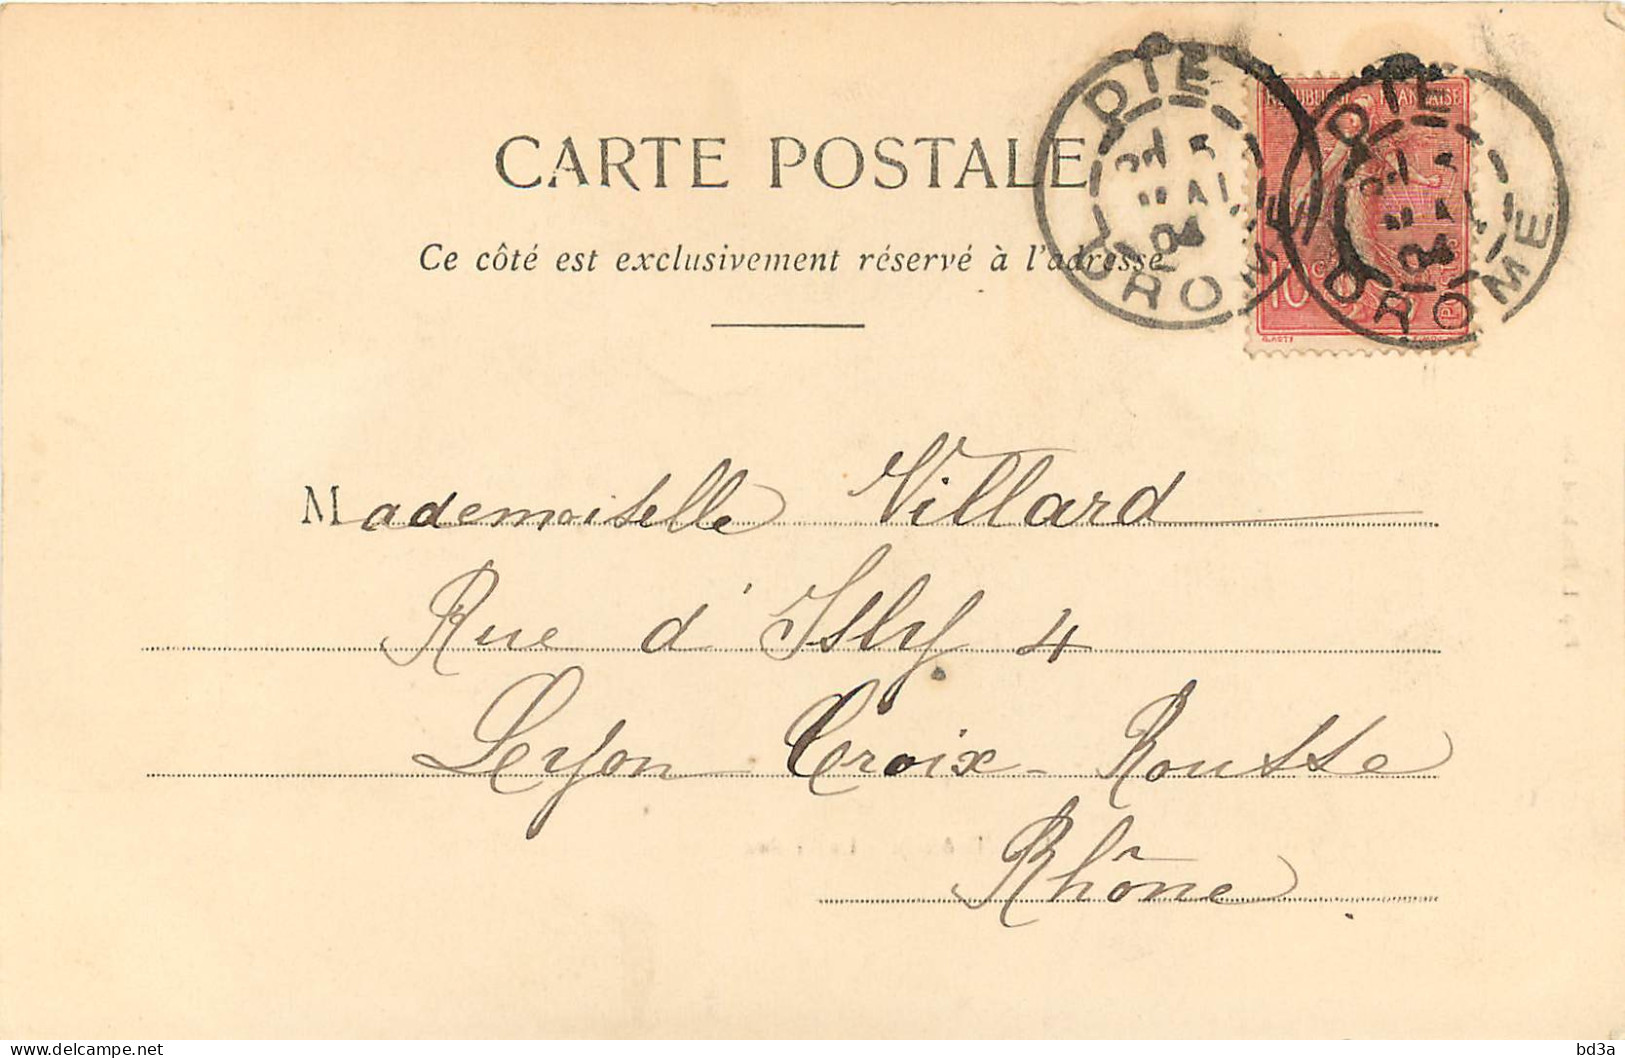 DIE
DROME
04
DIE
DROME
04
REPUBLIQUE FRANÇAISE
10
CARTE POSTALE
Ce côté est exclusivement réservé à l'adresse
Mademoiselle Villard
Rue d'Isly 4
Lyon Croix-Rousse
Rhône
delcampe.net
bd3a